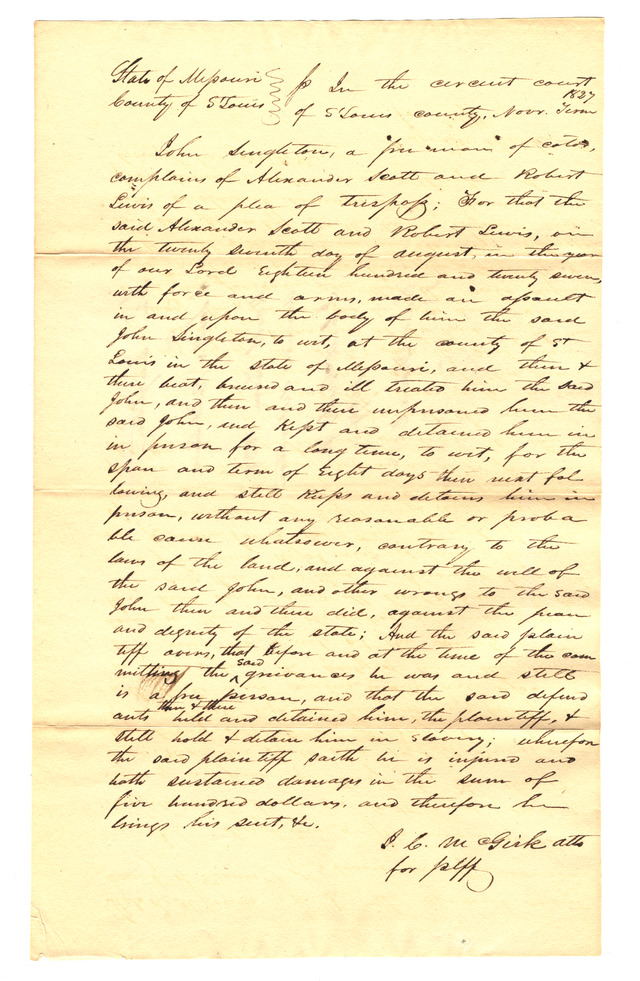 State of Missouri } ss In the circuit court
County of St Louis } of St Louis county, Novr. Term 1827
John Singleton, a "free man" of color,
complains of Alexander Scott and Robert
Lewis of a plea of trespass; For that the
said Alexander Scott and Robert Lewis, on
the twenty seventh day of august, in the year
of our Lord Eighteen hundred and twenty seven,
with force and arms, made an assault
in and upon the body of him the said
John Singleton, to wit, at the county of St
Louis in the state of Missouri, and then &
there beat, bruised and ill treated him the said
John, and then and there imprisoned him the
said John, and kept and detained him in
in prison for a long time, to wit, for the
span and term of Eight days then next fol
lowing, and still keeps and detains him in
prison, without any reasonable or proba
ble cause whatsoever, contrary to the
laws of the land, and against the will of
the said John, and other wrongs to the said
John then and there did, against the peace
and dignity of the state; And the said plain
tiff avers, that before and at the time of the com
mitting the said grievances he was and still
is a free person, and that the said defend
ants then & there held and detained him, the plaintiff, &
still hold & detain him in slavery; wherefore
the said plaintiff saith he is injured and
hath sustained damages in the sum of
five hundred dollars, and therefore he
brings his suit, &c.
I. C. McGirk atto
for plff